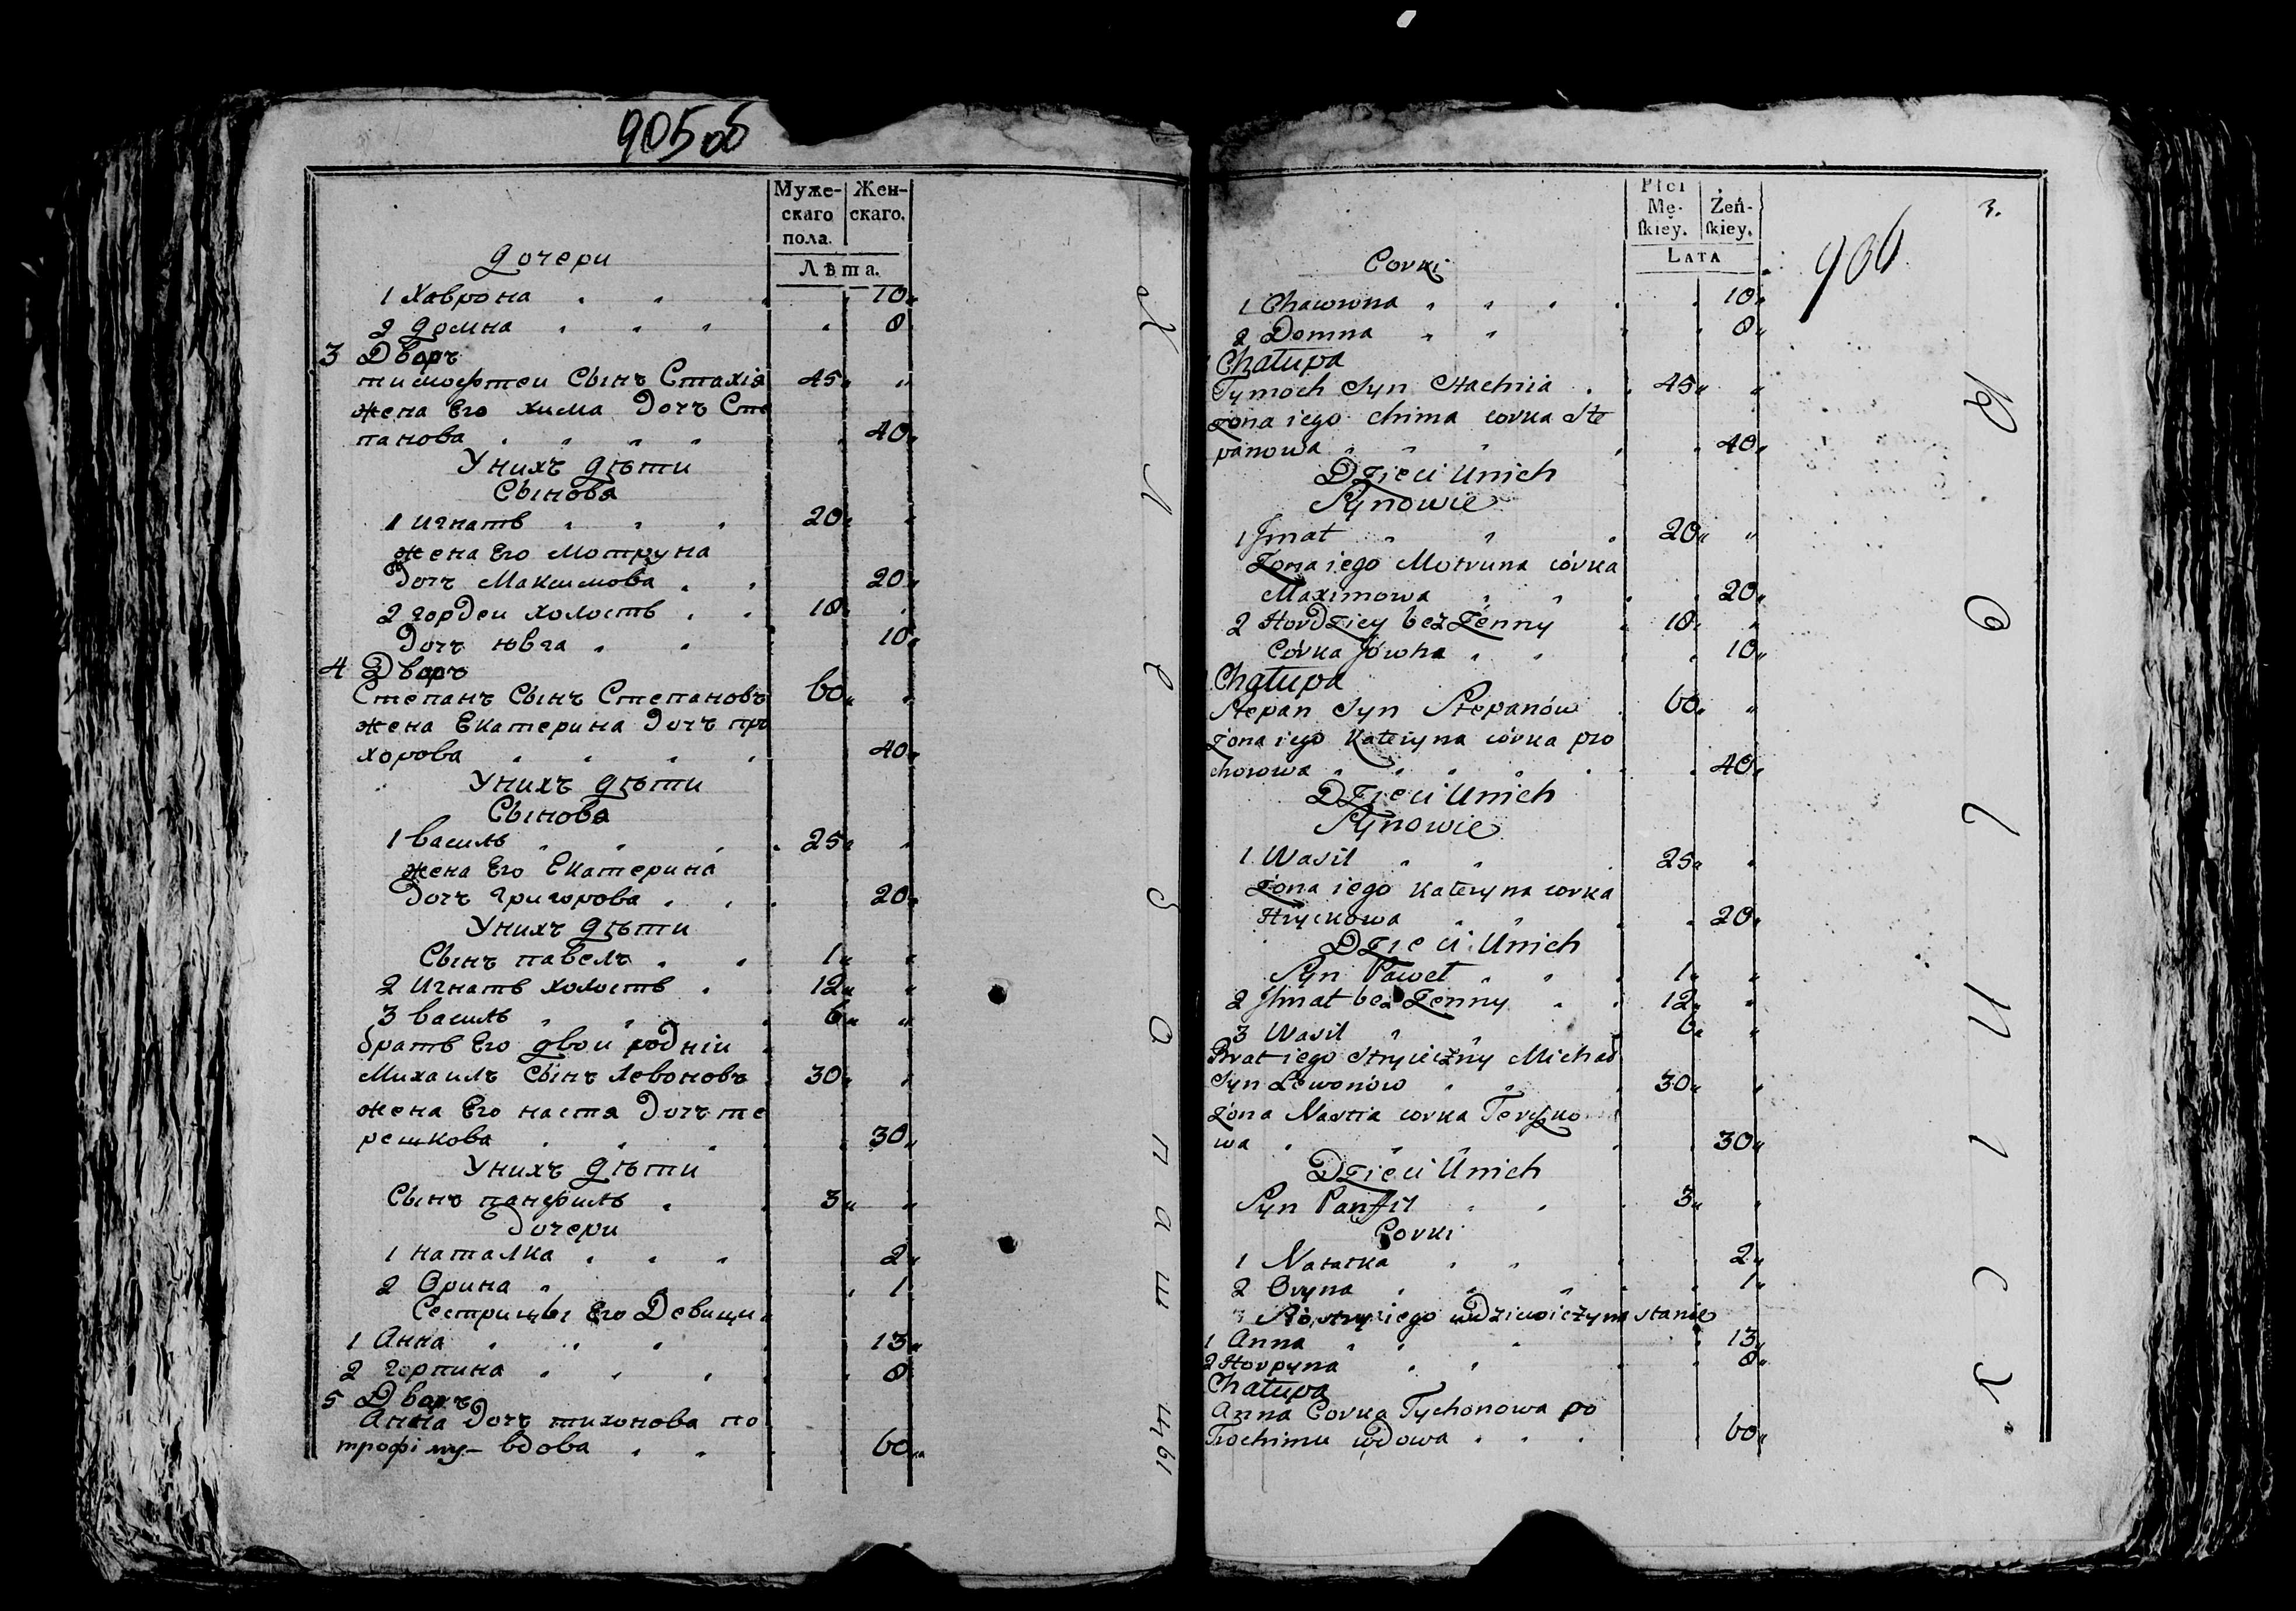 905 об
Муже-
скаго
пола.
Жен-
скаго.
Лѣта.
Дочери
1 Хаврона 10
2 Домна 8
3 Дворъ
тимофтеи Сынъ Стахія 45
жена Его хима Дочъ Сте
панова 40
Унихъ дѣти
Сынова
1 игнатъ 20
жена Его мотруна
Дочъ Максимова 20
2 гордеи холостъ 18
Дочъ ювга 10
4 Дворъ
Степанъ Сынъ Степановъ 60
жена Екатерина Дочъ про
хорова 40
Унихъ дѣти
Сынова
1 василь 25
жена Его Екатерина
Дочъ григорова 20
Унихъ дѣти
Сынъ павелъ 1
2 Игнатъ холостъ 12
3 василь 6
братъ Его двои родніи
Михаилъ Сынъ Левоновъ 30
жена Его настя Дочъ те
решкова 30
Унихъ дѣти
Сынъ панфилъ 3
Дочери
1 наталка 2
2 Орина 1
Сестрицы Его Девици
1 Анна 13
2 горпина 8
5 Дворъ
Анна Дочъ тихонова по
трофіму вдова 60
Х л е б о п а ш цы
Płci
Mę-
skiey.
Żeń-
skiey.
LATA
3.
906
Corki
1 Chawrona 10
2 Domna 8
Chałupa
Tymoch Syn Stachiia 45
Żona iego Chima corka Ste
panowa 40
Dzieci Unich
Synowie
1 Jhnat 20
Żona iego Motruna córka
Maximowa 20
2 Hordziey bez Żenny 18
Corka Jówha 10
Chałupa
Stepan Syn Stepanów 60
żona iego Kateryna córka pro
chorowa 40
Dzieci Unich
Synowie
1 Wasil 25
Żona iego Kateryna corka
Hryckowa 20
Dzieci Unich
Syn Paweł 1
2 Jhnat bez Żenny 12
3 Wasil 6
Brat iego Stryieczny Michał
Syn Lewonów 30
żona Nastia corka Tereszko
wa 30
Dzieci Unich
Syn Panfil 3
Corki
1 Natałka 2
2 Oryna 1
Siostry iego wdziewiczym stanie
1 Anna 13
2 Horpyna 8
Chałupa
Anna Corka Tychonowa po
Trochimu wdowa 60
R o l n i c y